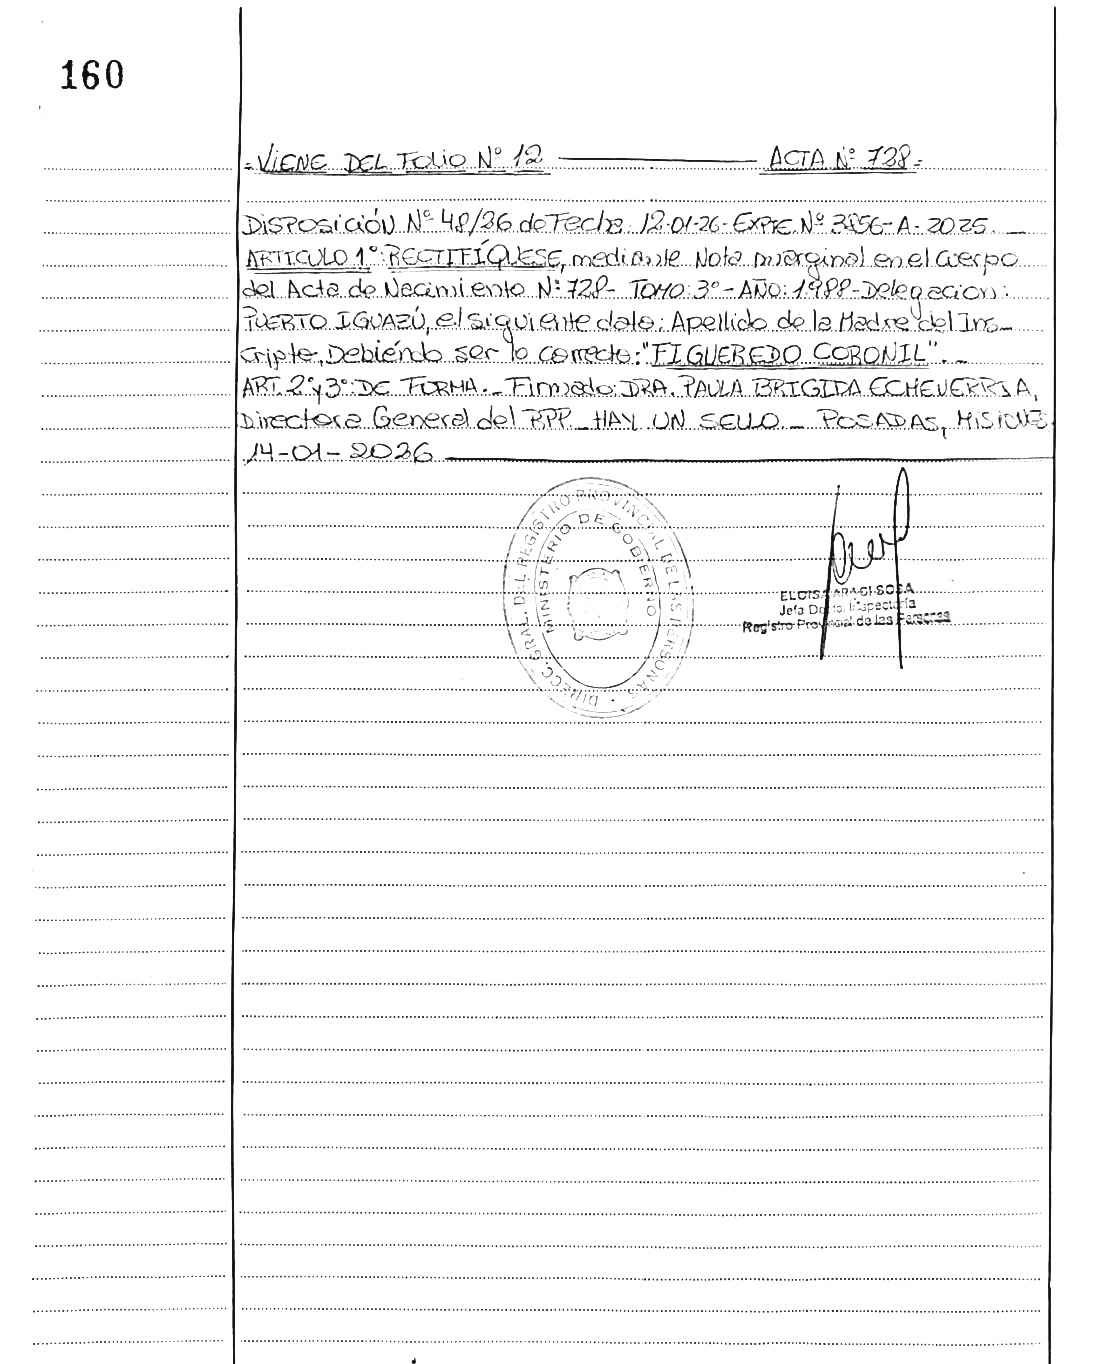 160
- VIENE DEL FOLIO Nº 12 ACTA Nº 728 -
DISPOSICIÓN Nº 48/26 de Fecha 12-01-26 - EXPTE. Nº 3856-A-2025. _
ARTICULO 1º: RECTIFÍQUESE, mediante Nota marginal en el Cuerpo
del Acta de Nacimiento Nº: 728 - TOMO: 3º - AÑO: 1988 - Delegacion:
PUERTO IGUAZÚ, el siguiente dato: Apellido de la Madre del Ins-
cripto, Debiendo ser lo correcto: "FIGUEREDO CORONIL". _
ART. 2º y 3º: DE FORMA. _ Firmado: DRA. PAULA BRIGIDA ECHEVERRIA,
Directora General del RPP _ HAY UN SELLO _ POSADAS, MISIONES
14-01-2026
DIRECC. GRAL. DEL REGISTRO PROVINCIAL DE LAS PERSONAS
MINISTERIO DE GOBIERNO
SOSA
Jefa Dpto. Inspectoría
Registro Provincial de las Personas